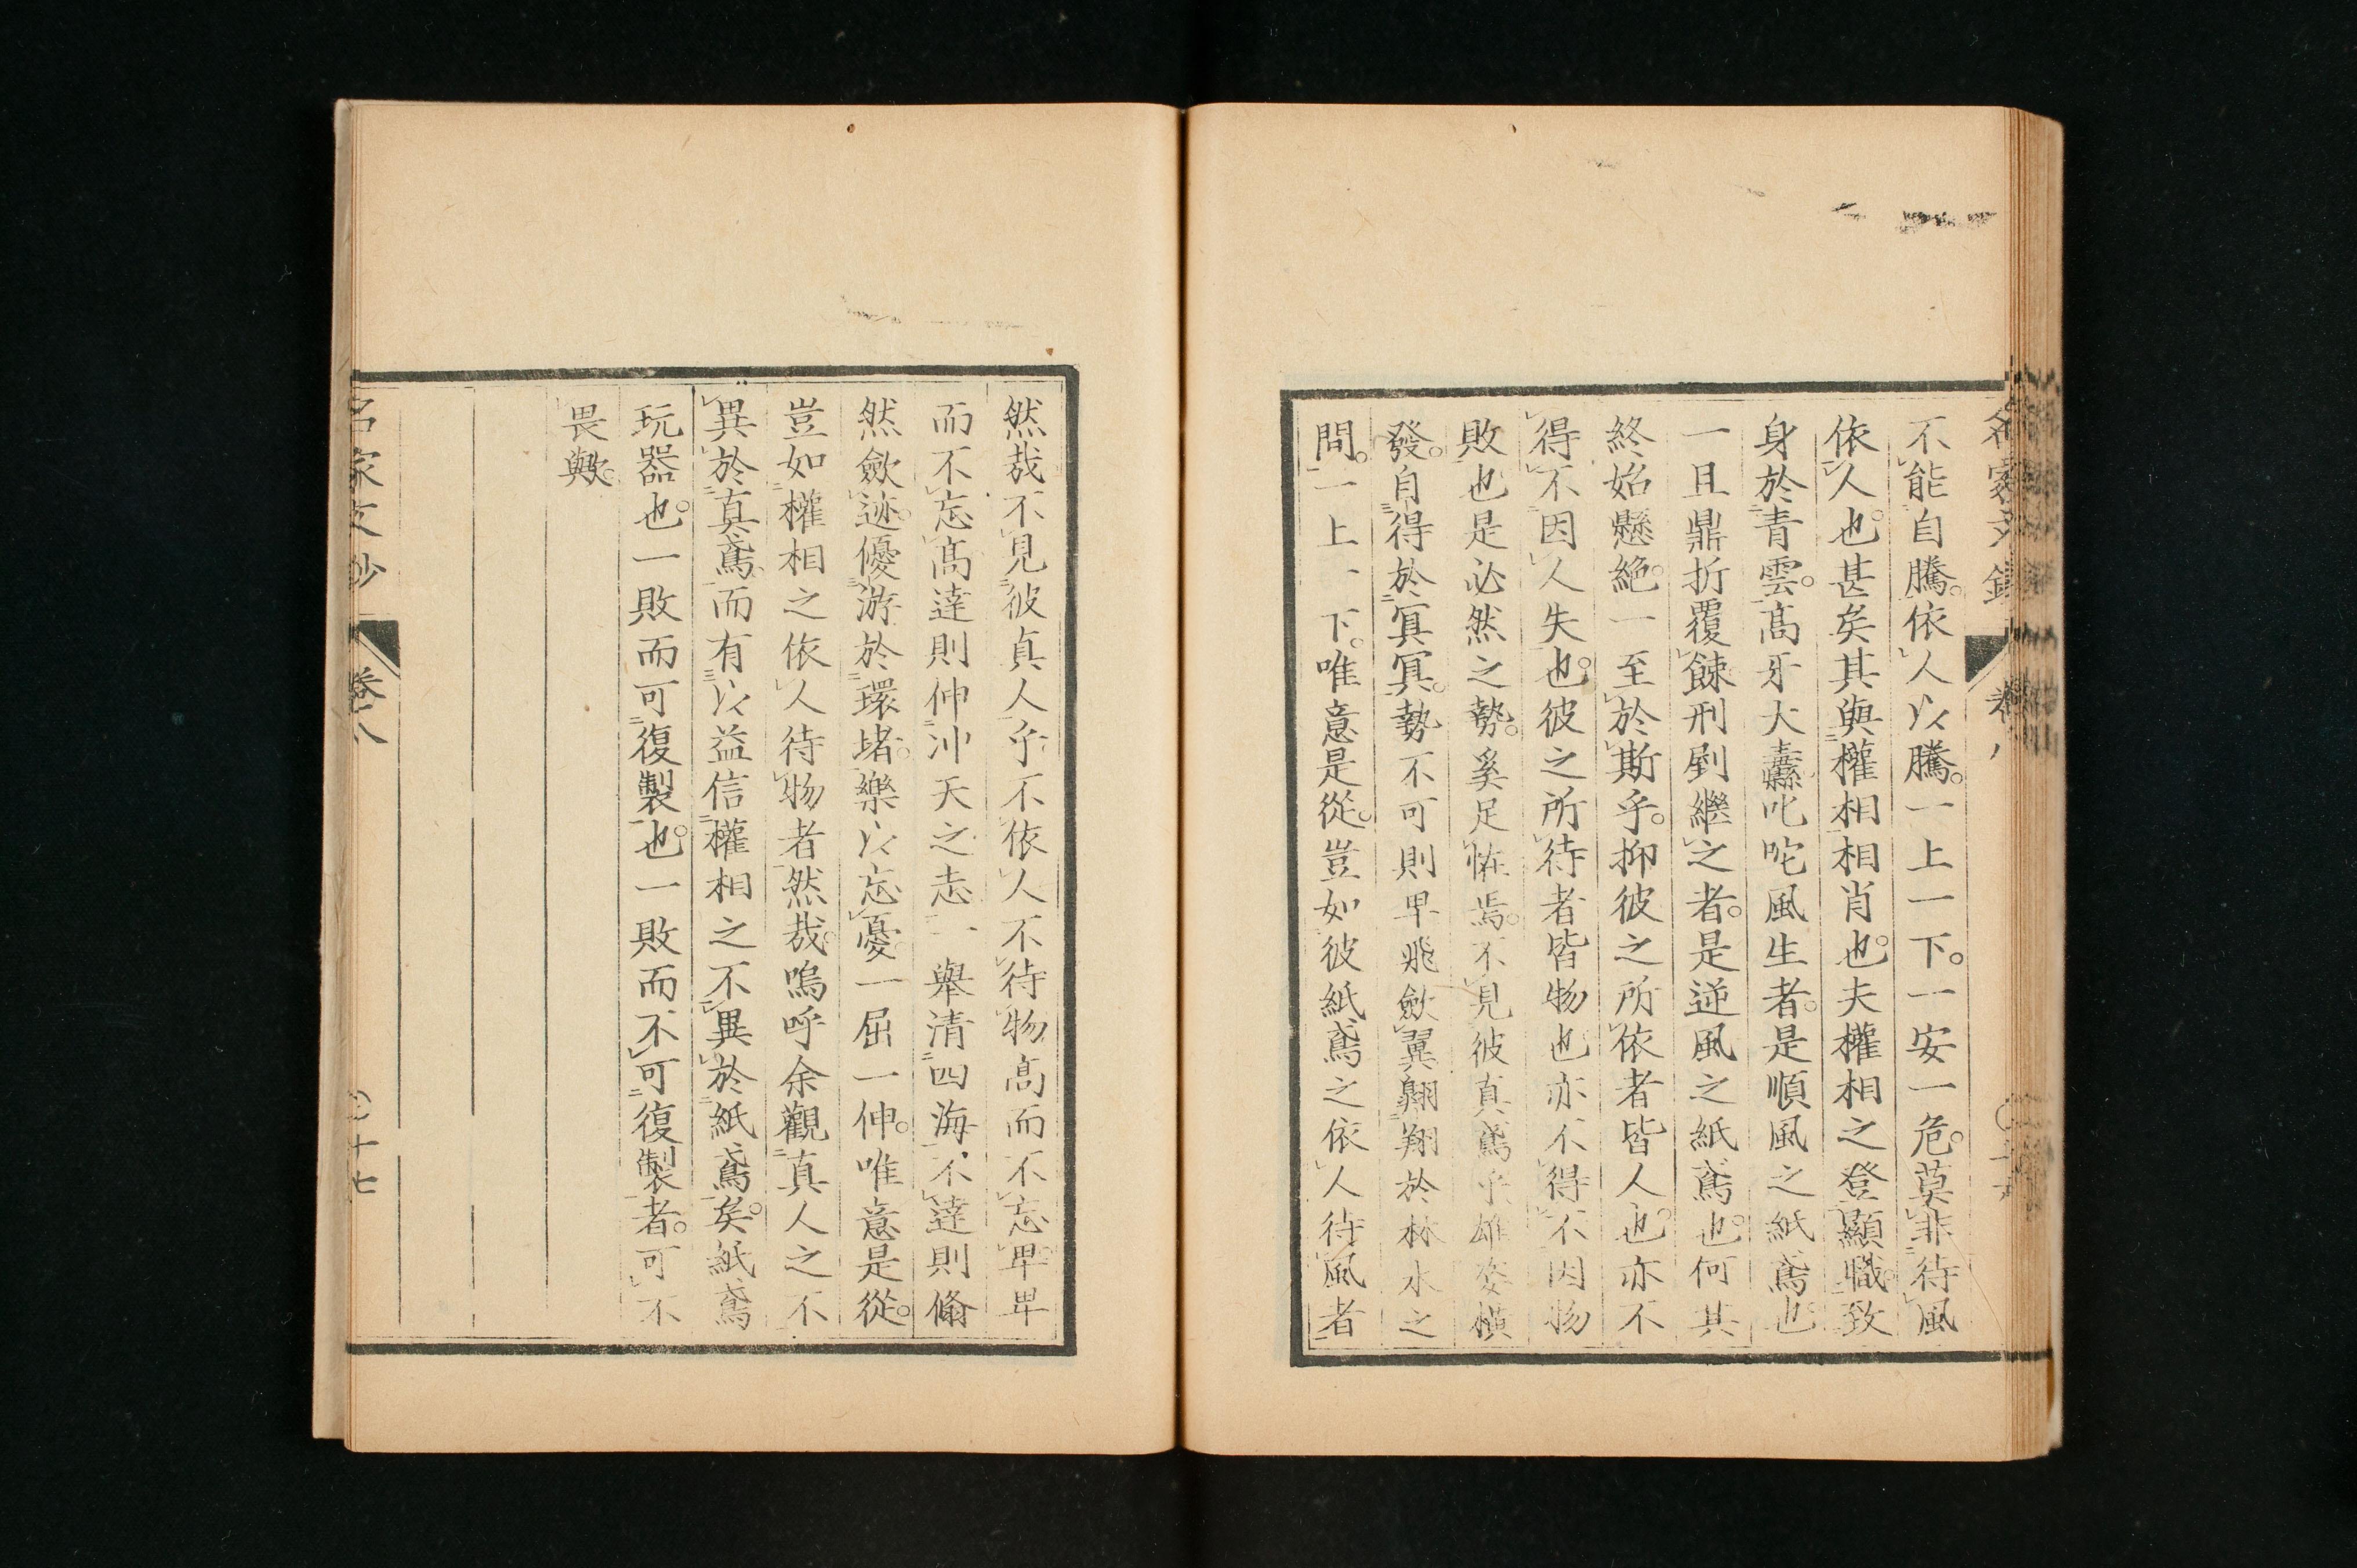 不能自騰。依人以騰。一上一下。一安一危。莫非待風
依人也。甚矣其與權相相肖也。夫權相之登顯職。致
身於青雲。高牙大纛叱咤風生者。是順風之紙鳶也。
一旦鼎折覆餗刑戮繼之者。是逆風之紙鳶也。何其
終始懸絶。一至於斯乎。抑彼之所依者皆人也。亦不
得不因人失也。彼之所待者皆物也亦不得不因物
敗也是必然之勢。奚足恠焉。不見彼真鳶乎雄姿橫
發。自得於冥冥。勢不可則卑飛斂翼翺翔於林水之
間。一上一下。唯意是從。豈如彼紙鳶之依人待風者
然哉不見彼真人乎不依人不待物高而不忘卑。卑
而不忘高達則伸冲天之志一舉清四海。不達則翛
然斂迹。優游於環堵。樂以忘憂。一屈一伸。唯意是從。
豈如權相之依人待物者然哉。嗚呼余觀真人之不
異於真鳶。而有以益信權相之不異於紙鳶矣。紙鳶
玩器也。一敗而可復製也。一敗而不可復製者。可不
畏歟。
名家文鈔
卷八
十七